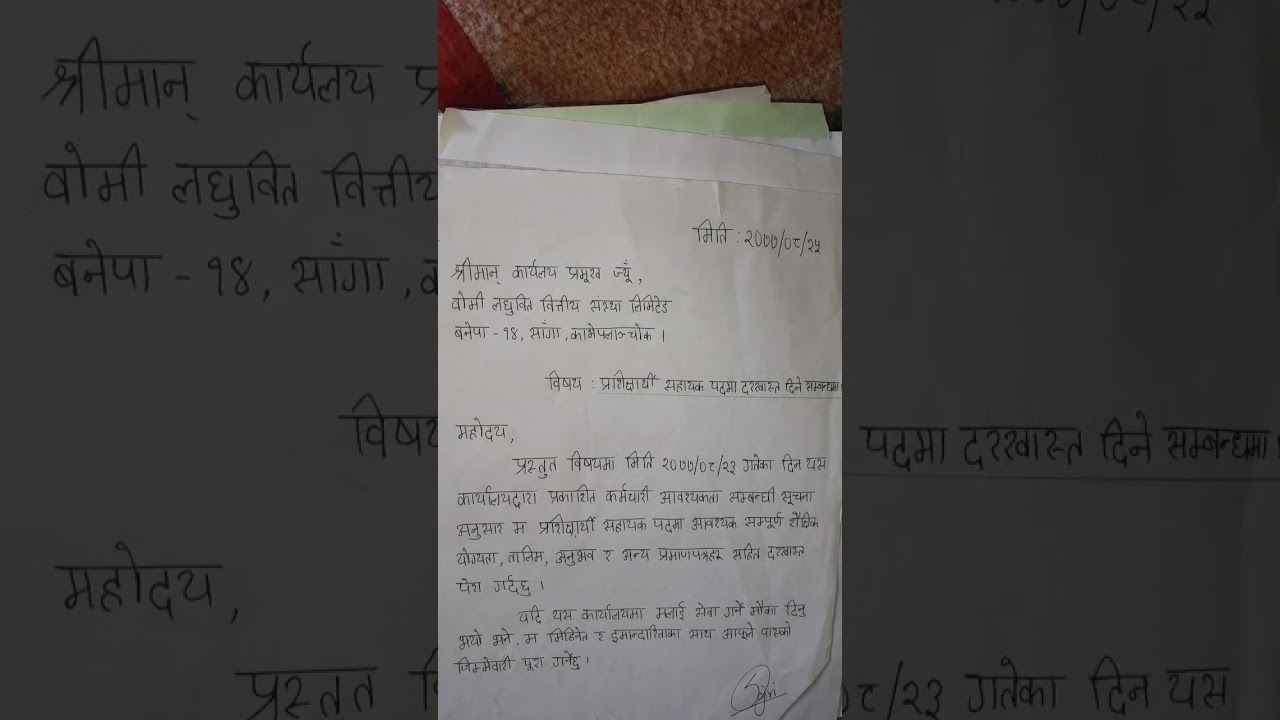 मिति : २०७७/०८/२५
श्रीमान् कार्यलय प्रमूख ज्यूँ,
वोमी लघुवित्त वित्तीय संस्था लिमिटेड
बनेपा - १४, साँगा, काभ्रेपलाञ्चोक ।
विषय : प्रशिक्षार्थी सहायक पदमा दरखास्त दिने सम्बन्धमा।
महोदय,
प्रस्तुत विषयमा मिति २०७७/०८/२३ गतेका दिन यस
कार्यालयद्वारा प्रकाशित कर्मचारी आवश्यकता सम्बन्धी सूचना
अनुसार म प्रशिक्षार्थी सहायक पदमा आवश्यक सम्पूर्ण शैक्षिक
योग्यता, तालिम, अनुभव र अन्य प्रमाणपत्रहरू सहित दरखास्त
पेश गर्दछु ।
यदि यस कार्यालयमा मलाई सेवा गर्ने मौका दिनु
भयो भने, म मिहिनेत र इमान्दारिताका साथ आफूले पाएको
जिम्मेवारी पूरा गर्नेछु ।